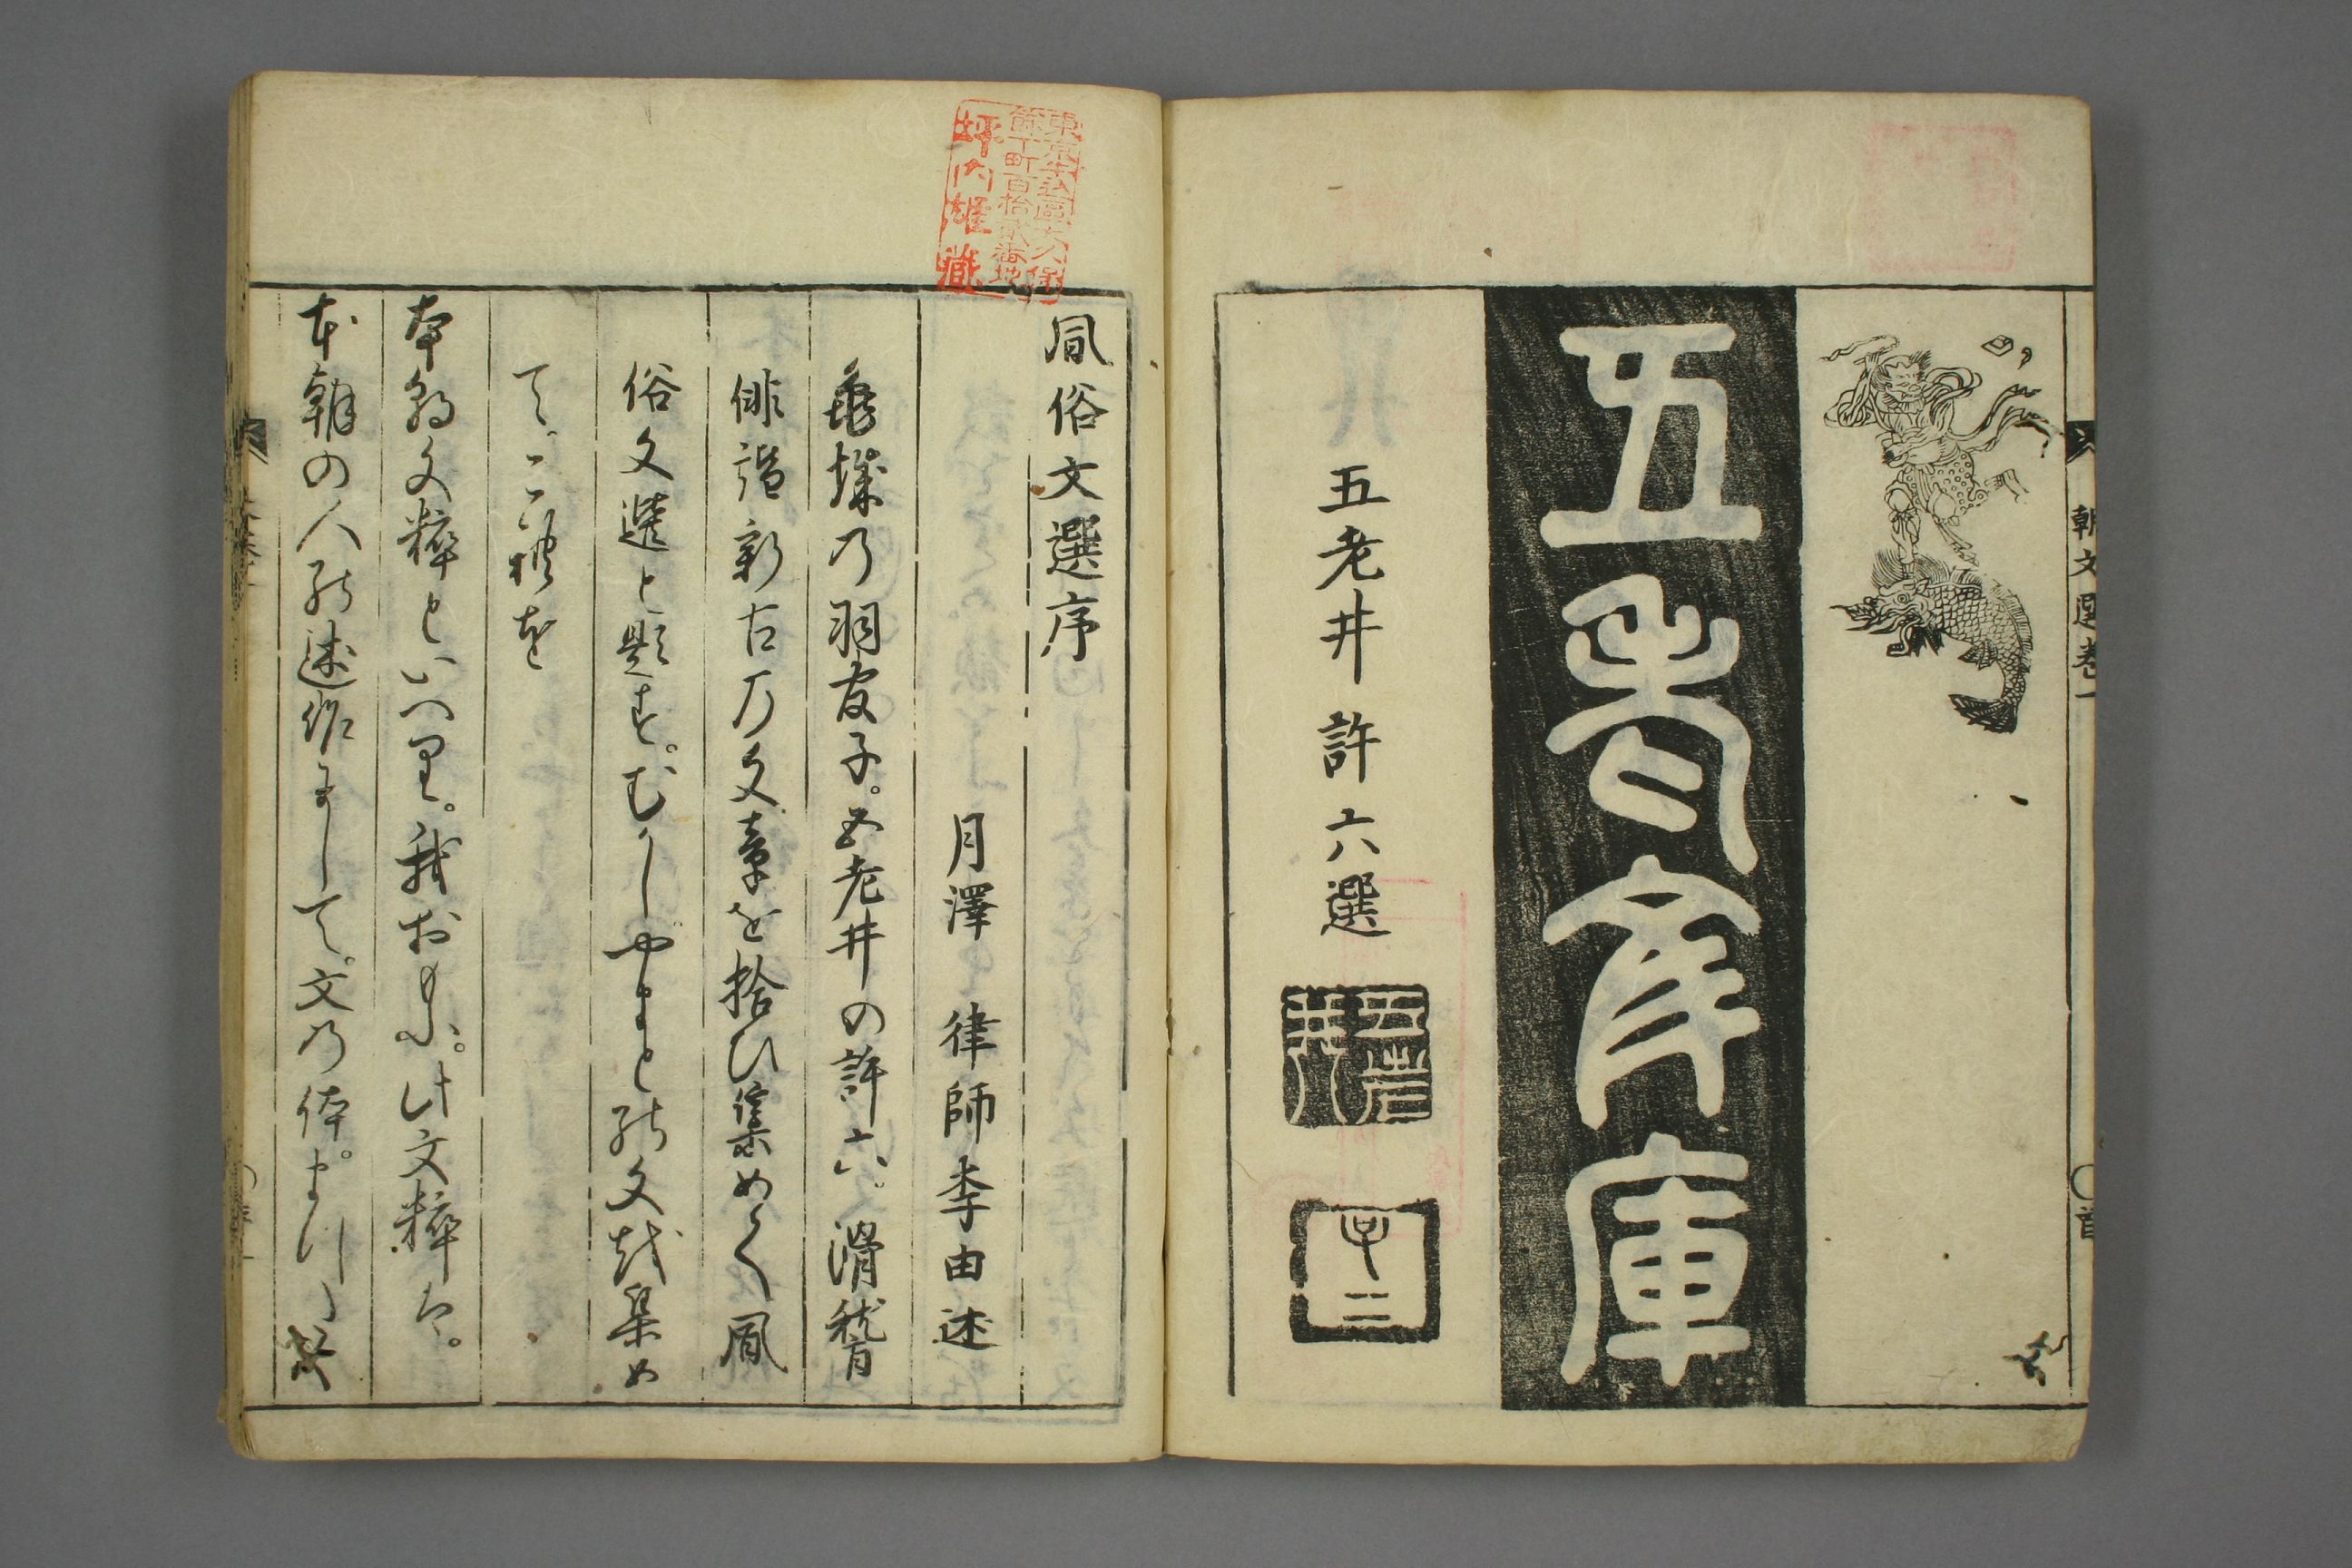 朝文選巻一
五老庫
五老井 許六選
五老井
東京牛込區大久保
餘丁町百拾貳番地
坪内雄蔵
風俗文選序
月澤 律師李由述
亀城の羽官子。五老井の許六。滑稽
俳諧新古の文章を拾ひ集めて風
俗文選と題す。むかしやまとの文を集め
て。これを
本朝文粹といへり。我おもふ。此文粹は。
本朝の人の述作にして。文の体。